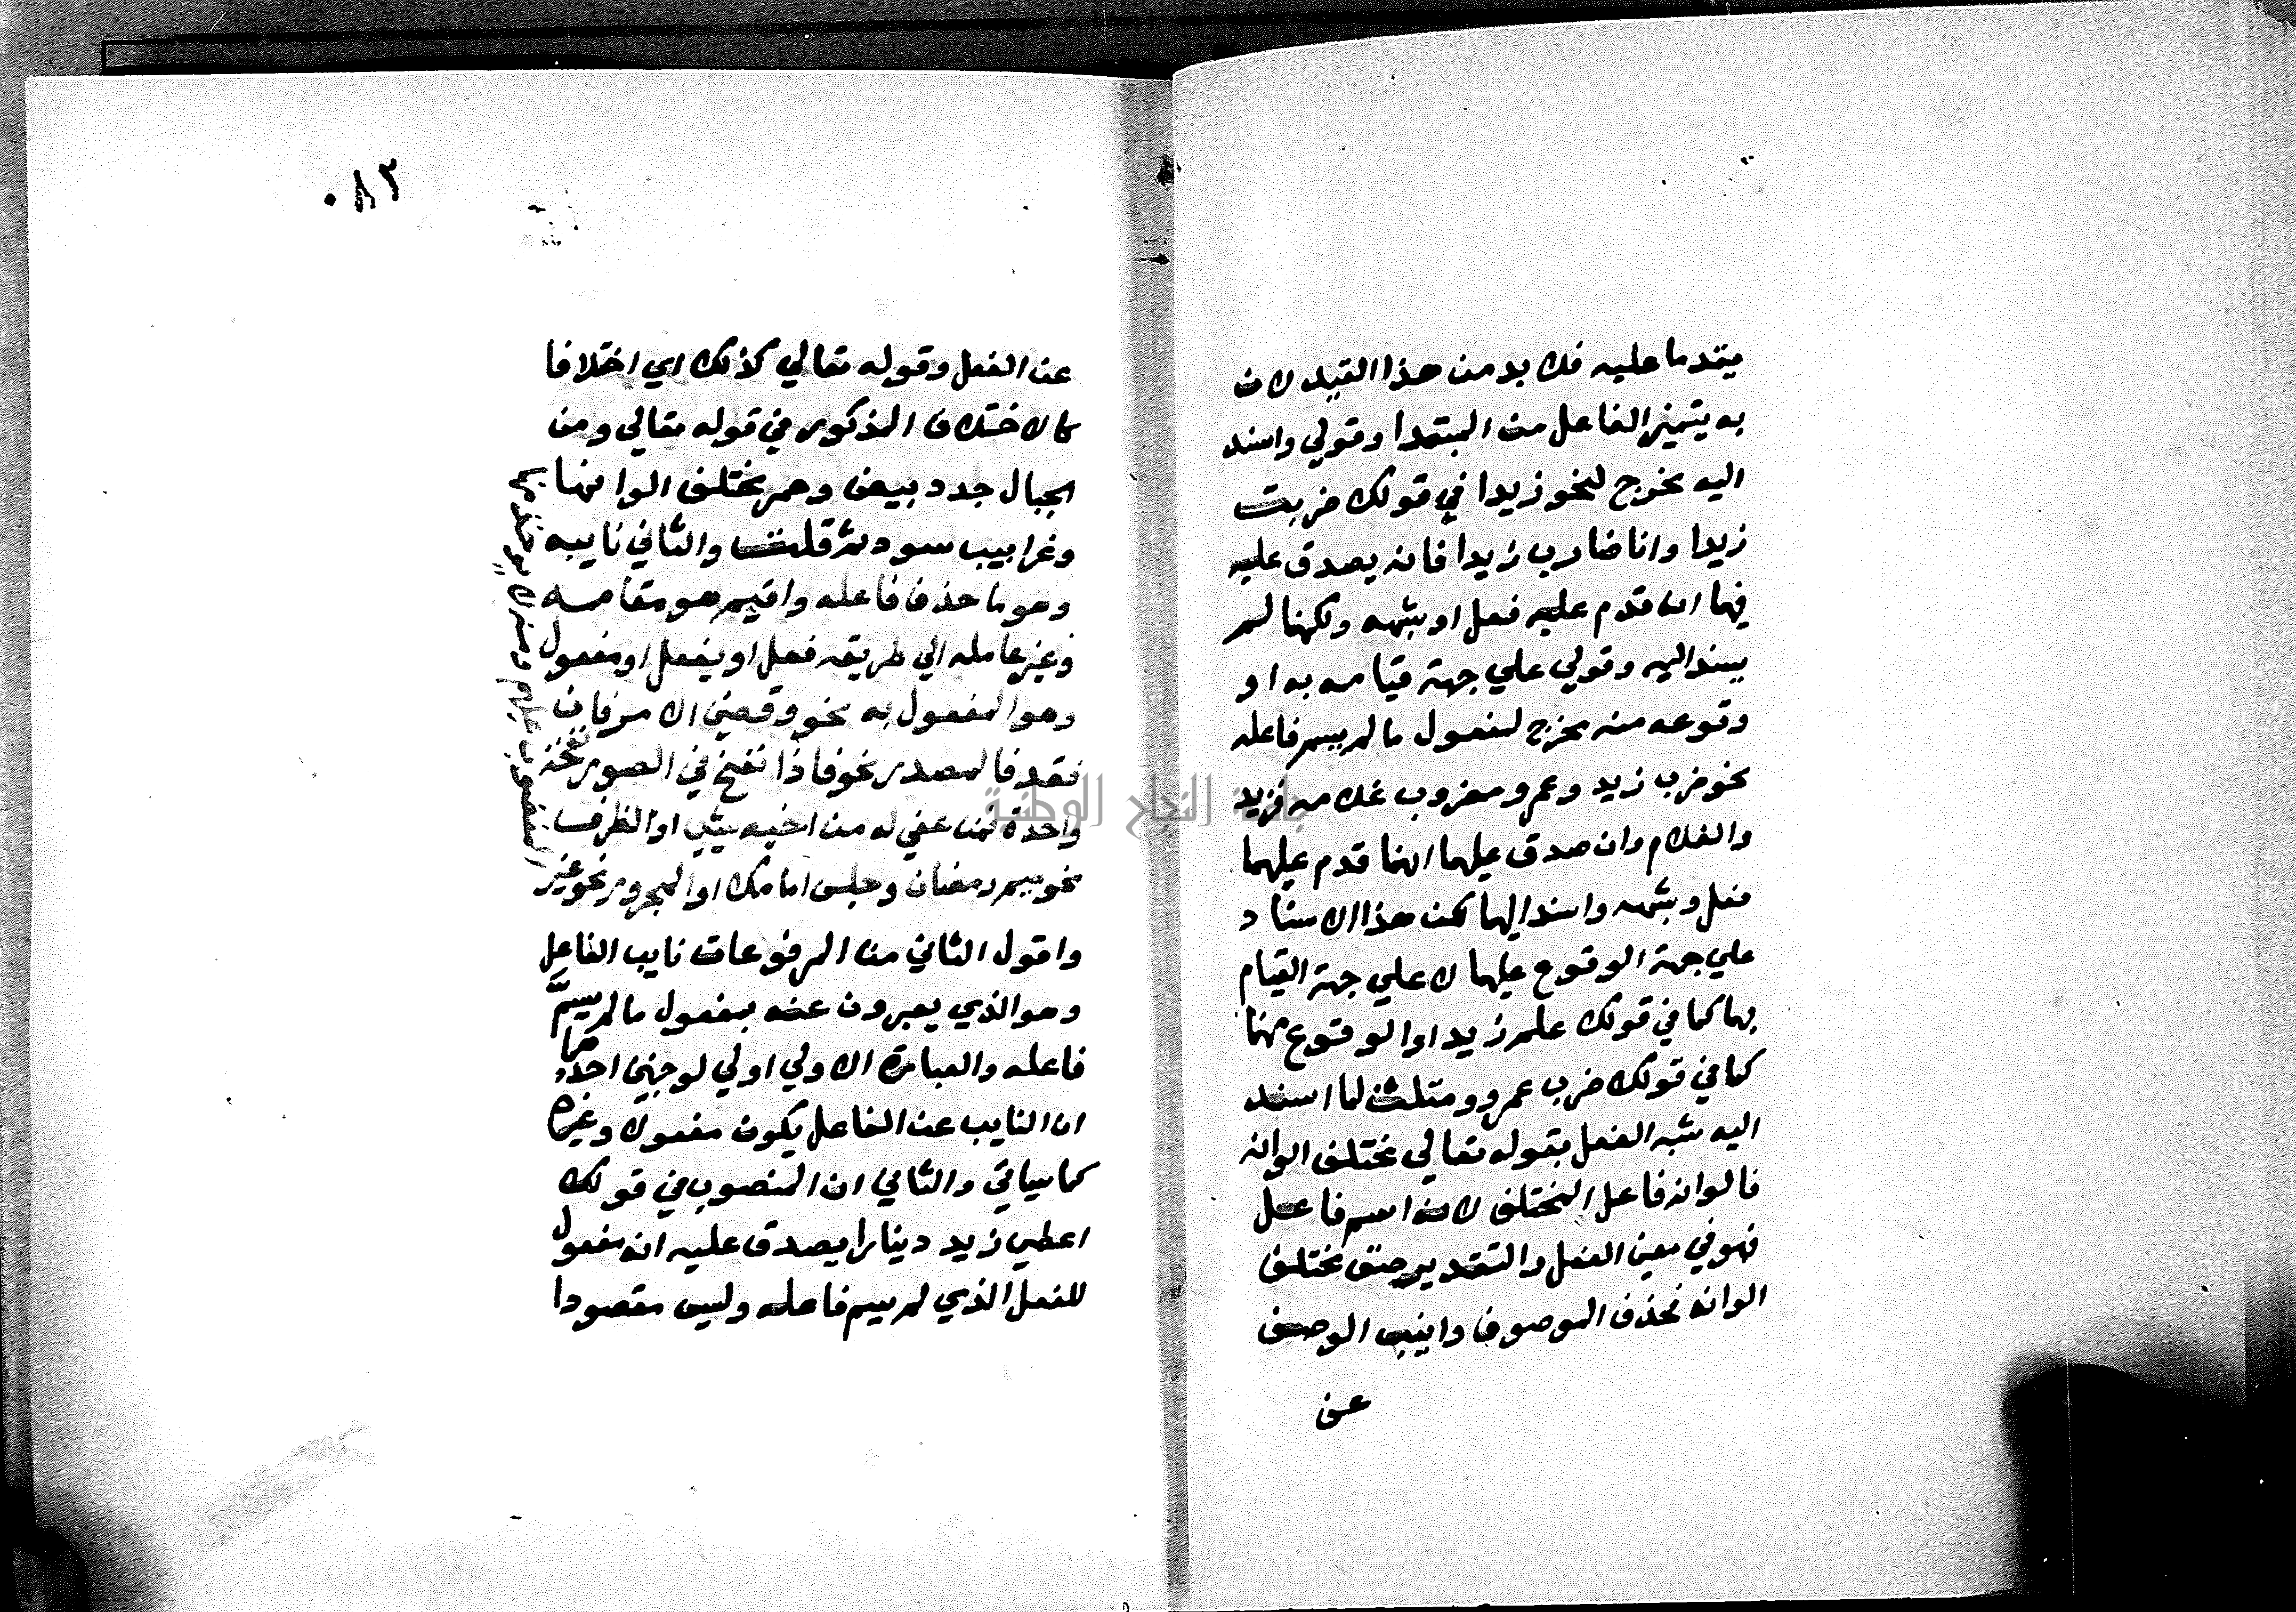 متقدما عليه فلا بد من هذا القيد لان
به يتميز الفاعل من المبتدا وقولي واسند
اليه مخرج لنحو زيدا في قولك ضربت
زيدا وانا ضارب زيدا فانه يصدق عليه
فيهما انه قدم عليه فعل او شبهه ولكنهما لم
يسند اليه وقولي علي جهة قيامه به او
وقوعه منه مخرج لمفعول ما لم يسم فاعله
نحو ضرب زيد وعمرو مضروب غلامه فزيد
والغلام وان صدق عليهما انهما قدم عليهما
فعل وشبهه واسند اليهما لكن هذا الاسناد
علي جهة الوقوع عليهما لا علي جهة القيام
بهما كما في قولك علم زيد او الوقوع منهما
كما في قولك ضرب عمرو ومثلت لما اسند
اليه شبه الفعل بقوله تعالي مختلف الوانه
فالوانه فاعل المختلف لانه اسم فاعل
فهو في معني الفعل والتقدير صنف مختلف
الوانه فحذف الموصوف وانيب الوصف
عن
٠٨٢
عن الفعل وقوله تعالي كذلك اي اختلافا
كالاختلاف المذكور في قوله تعالي ومن
الجبال جدد بيض وحمر مختلف الوانها
وغرابيب سود ثم قلت والثاني نايبه
وهو ما حذف فاعله واقيم هو مقامه
وغير عامله الي طريقه فعل او يفعل او مفعول
وهو المفعول به نحو وقضي الامر فان
فقد فالمصدر نحو فاذا نفخ في الصور نفخة
واحدة فمن عفي له من اخيه شي او الظرف
نحو صيم رمضان وجلس امامك او المجرور نحو غير
واقول الثاني من المرفوعات نايب الفاعل
وهو الذي يعبرون عنه بمفعول ما لم يسمّ
فاعله والعبارة الاولي اولي لوجهين احدهما
ان النايب عن الفاعل يكون مفعولا وغيره
كما سياتي والثاني ان المنصوب في قولك
اعطي زيد دينارا يصدق عليه انه مفعول
للفعل الذي لم يسم فاعله وليس مقصودا
المغضوب عليهم
جامعة النجاح الوطنية